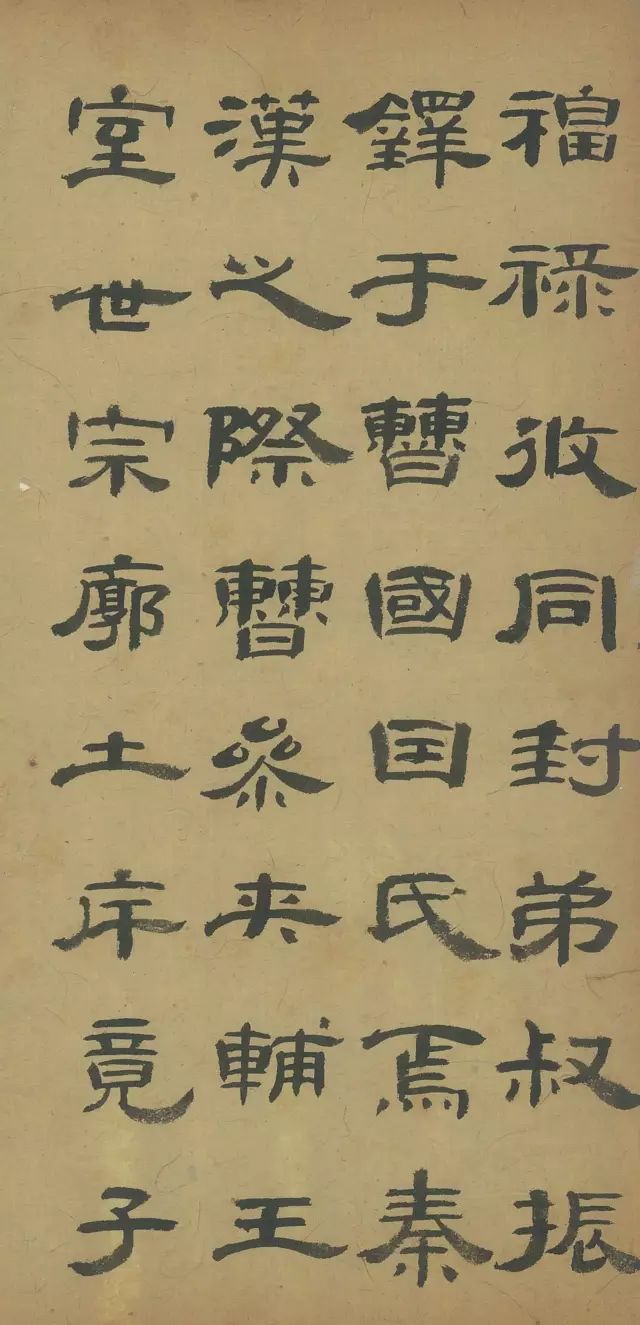 福祿攸同封弟叔振
鐸于曹國因氏焉秦
漢之際曹參夾輔王
室世宗廓土斥竟子